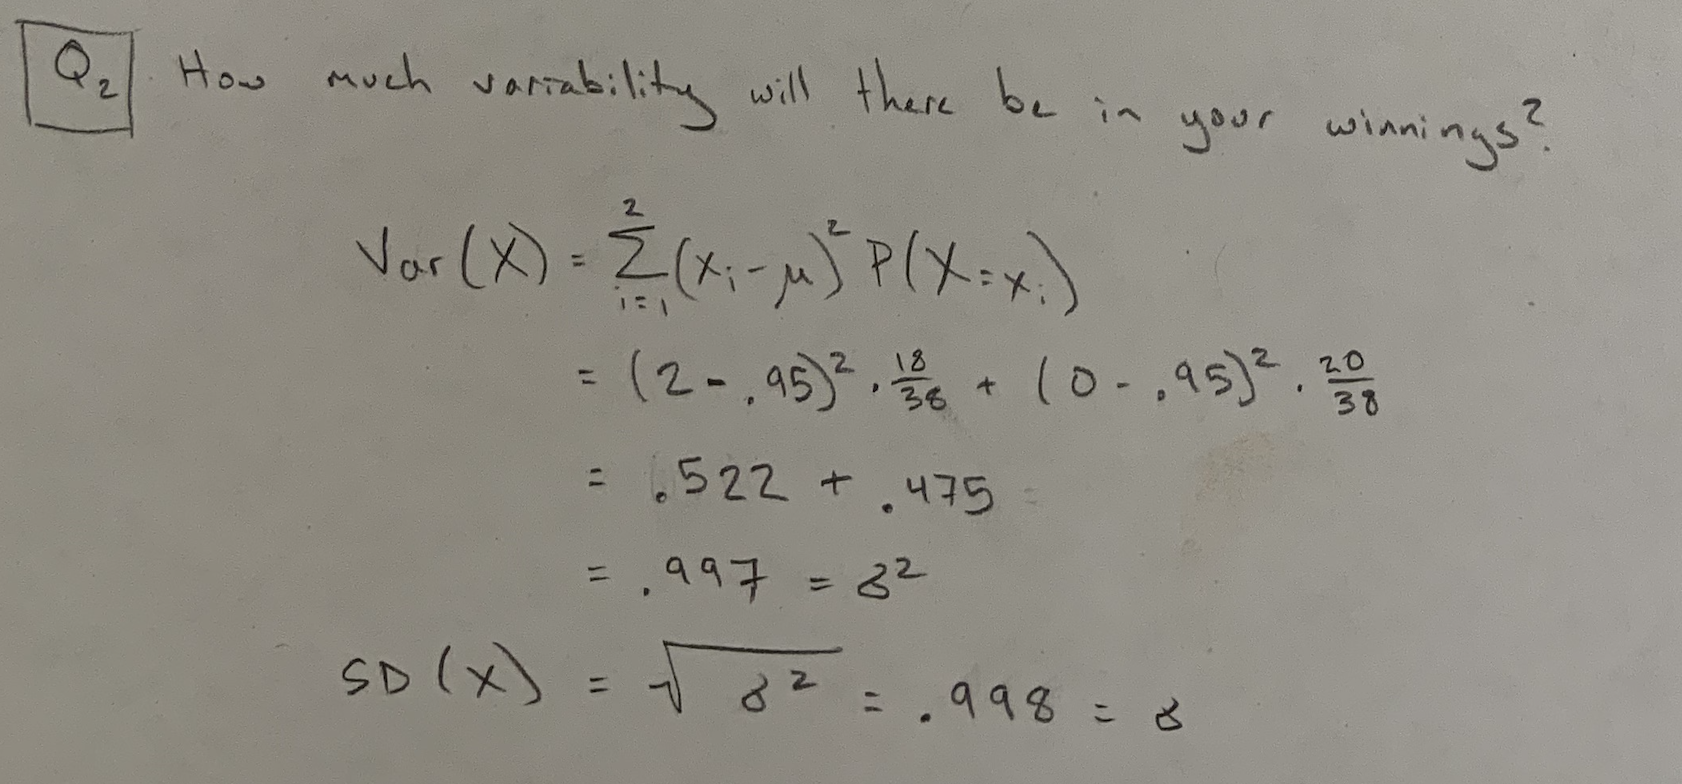 Q₂ How much variability will there be in your winnings?
Var(X) = ∑_{i=1}^{2} (xᵢ - μ)² P(X = xᵢ)
= (2 - .95)² · 18/38 + (0 - .95)² · 20/38
= .522 + .475
= .997 = σ²
SD(X) = √σ² = .998 = σ